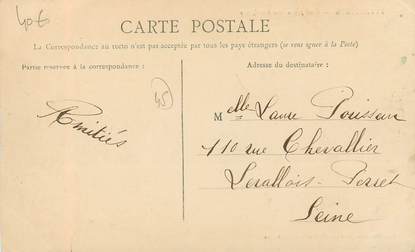 40€
CARTE POSTALE
La Correspondance au recto n'est pas acceptée par tous les pays étrangers (se renseigner à la Poste)
Partie réservée à la correspondance :
Adresse du destinataire :
45
Amitiés
Melle Laure Poisson
110 rue Chevallier
Levallois-Perret
Seine